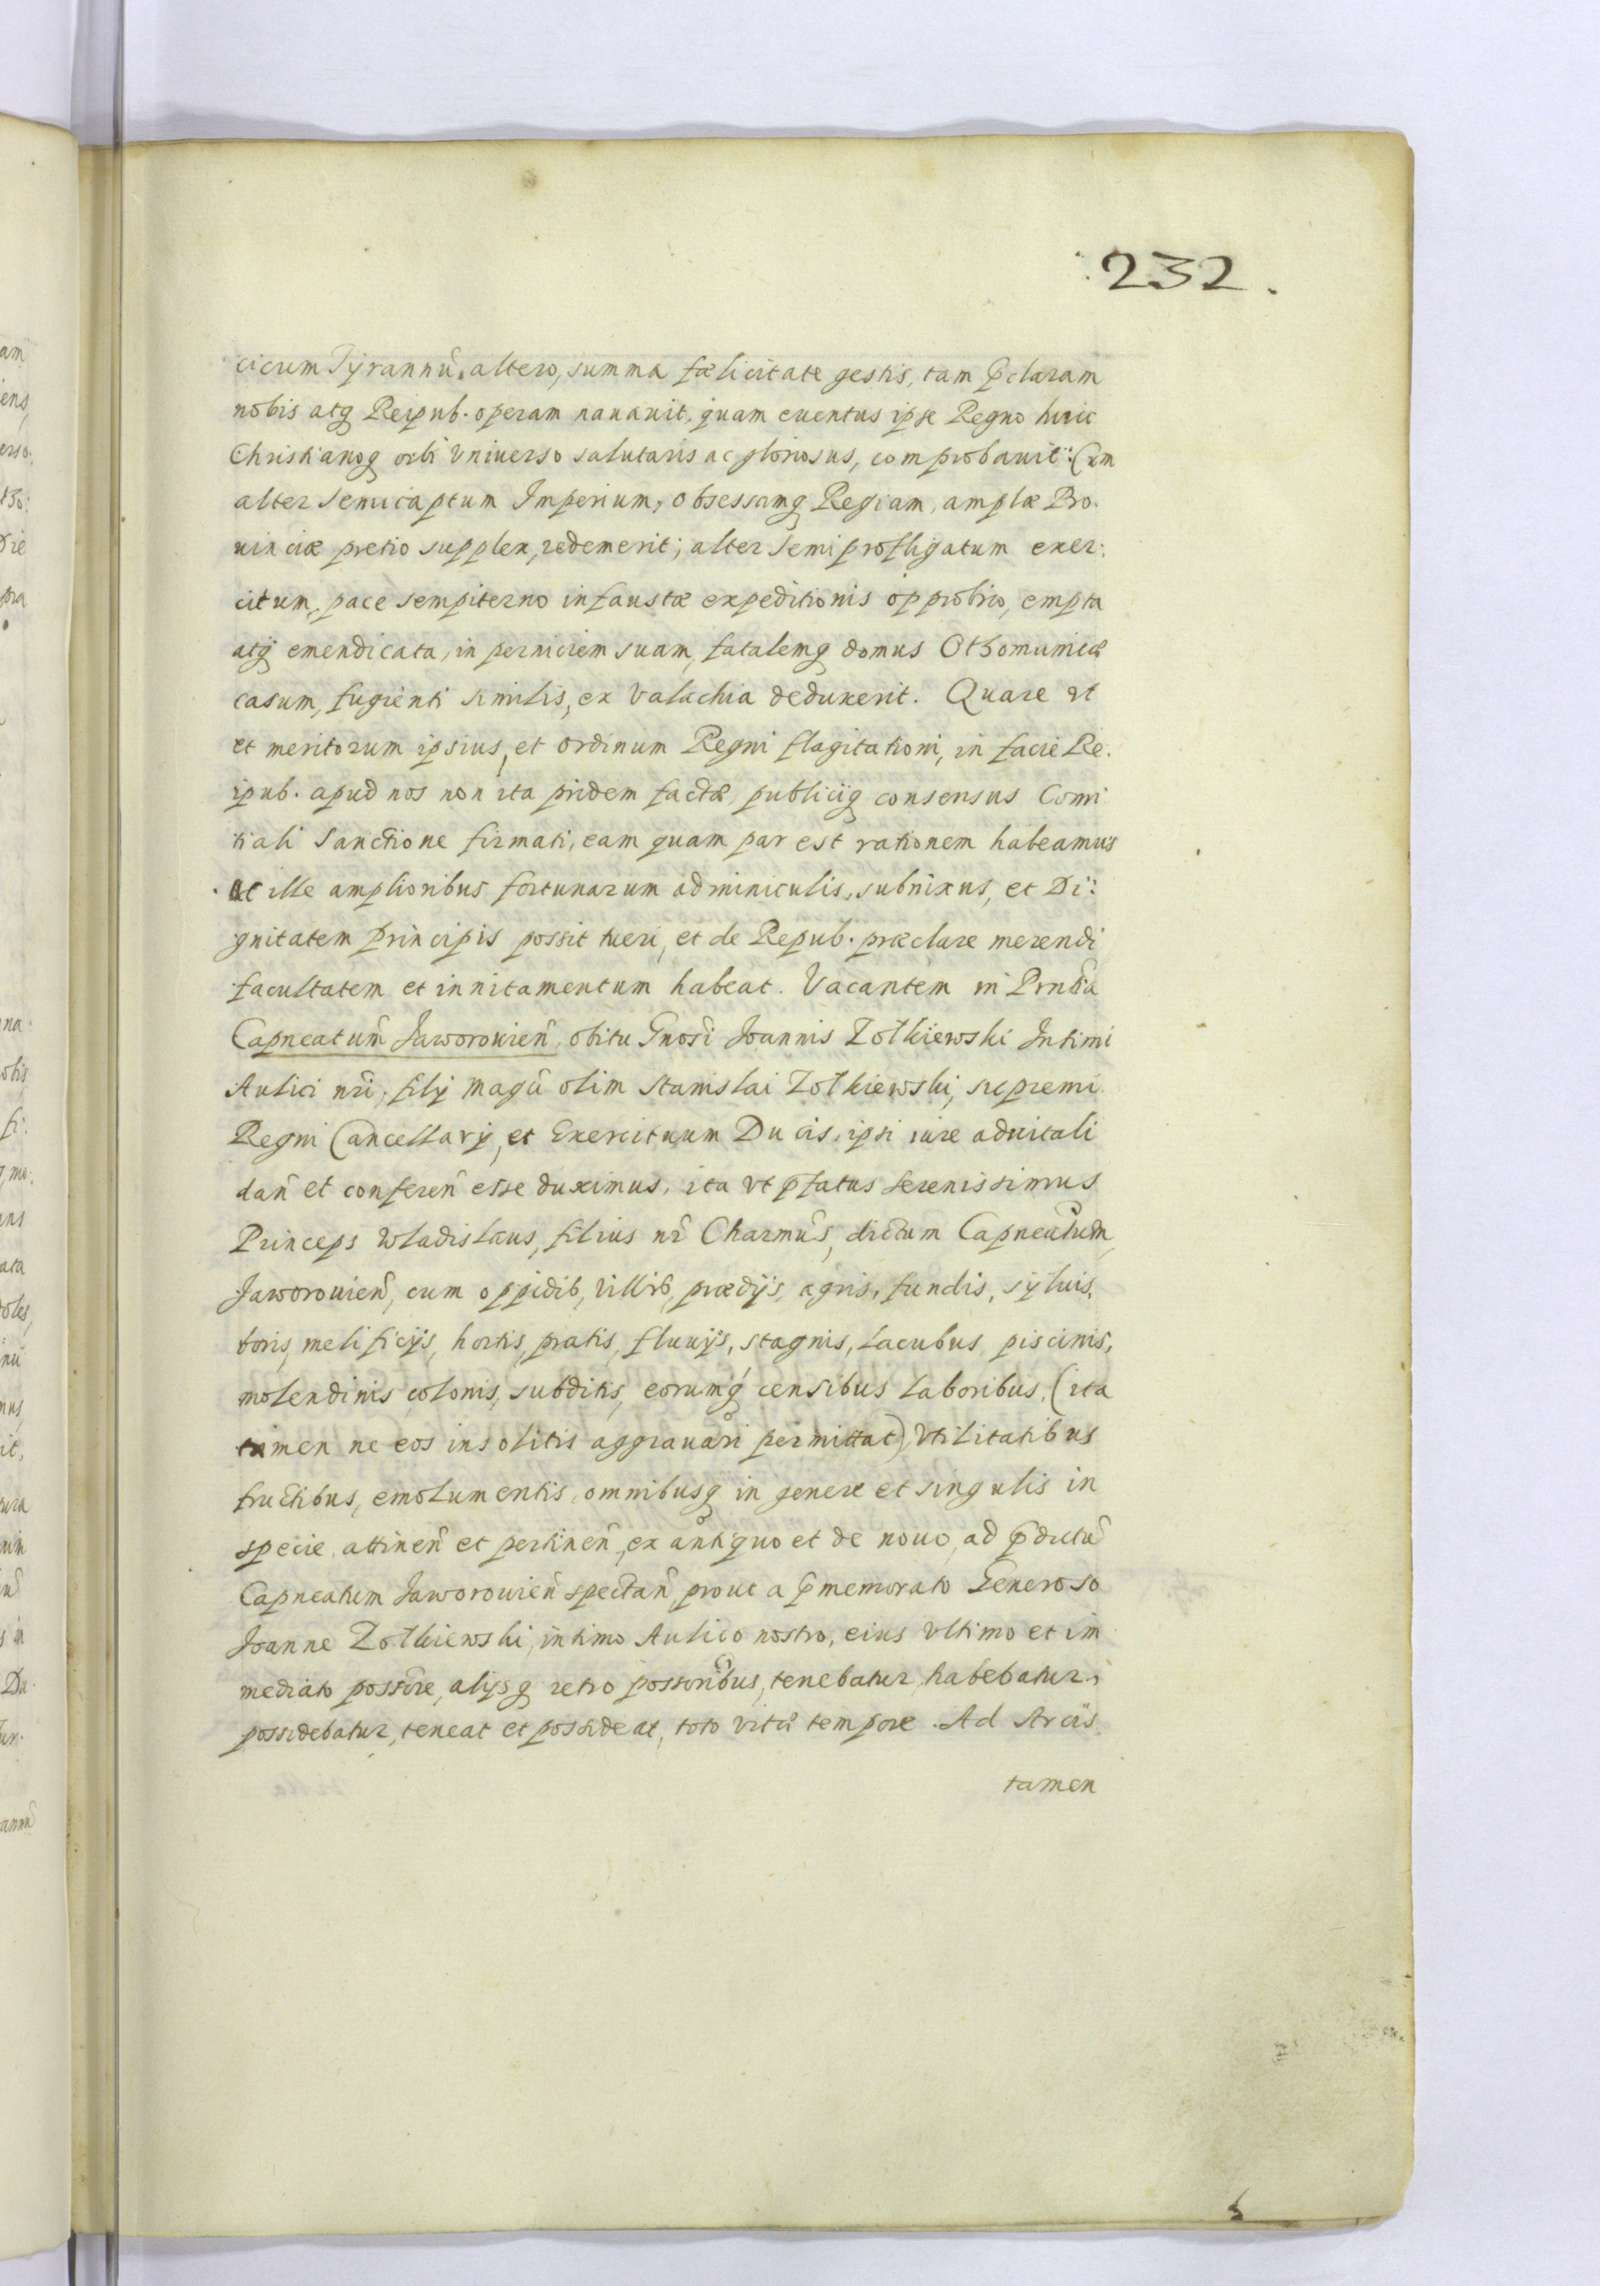 232.
cicum Tÿrannũ altero, summa fælicitate gestis, tam p̃claram
nobis atq Reipub. operam nauauit, quam euentus ipse Regno huic
Christianoq orbi Vniuerso salutaris ac gloriosus, comprobauit: Cum
alter semicaptum Imperium, obsessamq Regiam, amplæ Pro-
uinciæ pretio supplex, redemerit; alter semiprofligatum exer:
citum, pace sempiterno infaustæ expeditionis opprobrio, empta
atq emendicata, in perniciem suam, fatalemq domus Othomunicæ
casum, fugienti similis, ex Valachia deduxerit. Quare vt
et meritorum ipsius, et ordinum Regni flagitationi, in facie Re-
ipub. apud nos non ita pridem factæ, publiciq consensus Comi
tiali Sanctione firmati, eam quam par est rationem habeamus
Ut ille amplioribus fortunarum adminiculis, subnixus, et Di:
gnitatem Principis possit tueri, et de Repub. præclare merendi
facultatem et innitamentum habeat. Vacantem in Prñtia
Capneatum̃ Jaworouien̄, obitu Gnosi Joannis Zołkiewski Intimi
Aulici nr̃i, filij Magci olim Stanislai Zołkiewski, supremi
Regni Cancellarij, et Exercituum Ducis, ipsi iure aduitali
dañ et conferen̄ esse duximus, ita vt p̃fatus Serenissimus
Princeps Wladislaus, filius nr̃ Charmũs, dictum Capneatum
Jaworouien̄, cum oppidib, Villib, prædijs, agris, fundis, syluis,
boris, melificijs, hortis, pratis, fluuijs, stagnis, Lacubus piscinis,
molendinis colonis, subditis, eorumq́ censibus Laboribus, (ita
tamen ne eos insolitis aggrauari permittat) Vtilitatibus
fructibus, emolumentis, omnibusq in genere et singulis in
specie, attinen̄ et pertinen̄, ex antiquo et de nouo, ad p̃dictũ
Capneatum Jaworouien̄ spectan̄, prout a p̃memorato Generoso
Joanne Zołkiewski, intimo Aulico nostro, eius Vltimo et im
mediato possre, alijsq retro possoribus, tenebatur, habebatur,
possidebatur, teneat et possideat, toto vitæ tempore. Ad Arcis
tamen